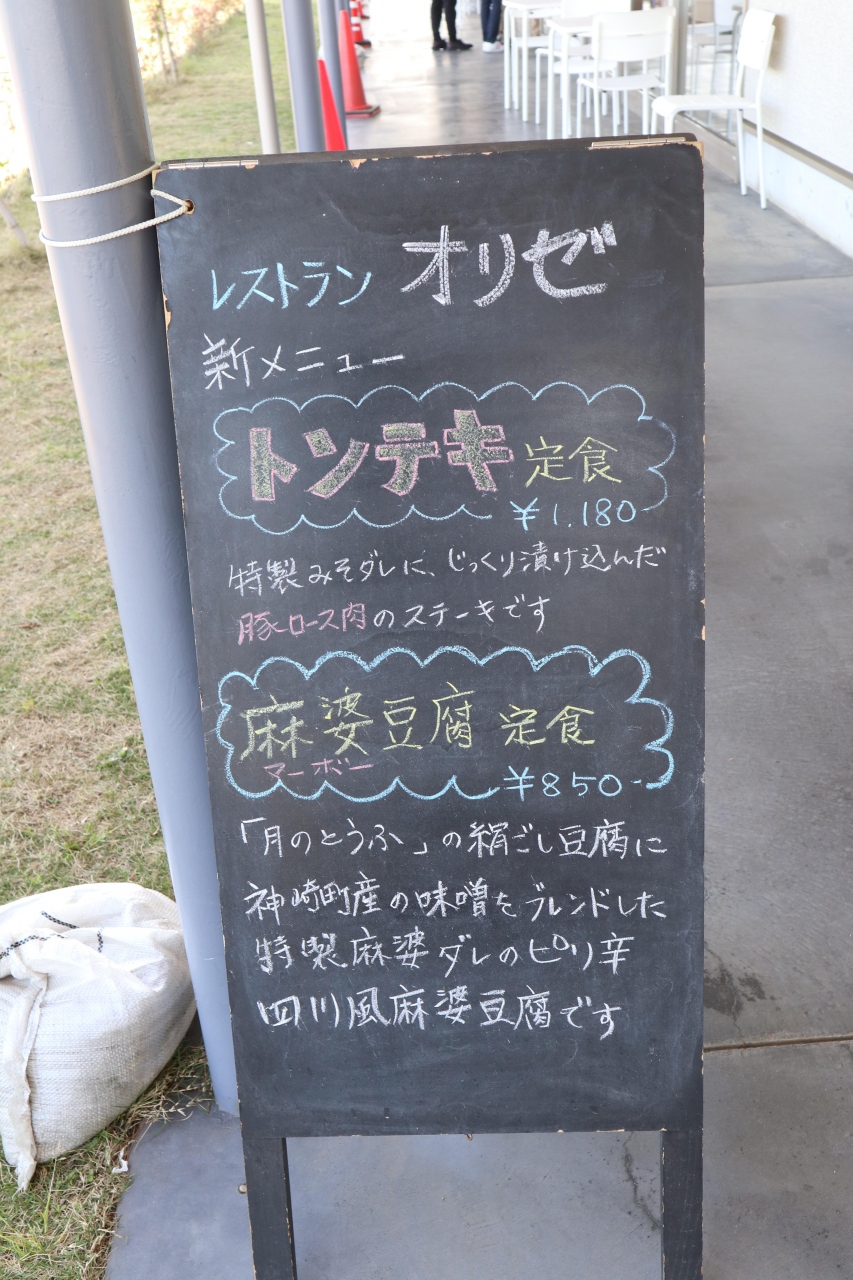 レストラン オリゼ
新メニュー
トンテキ定食
¥1,180
特製みそダレに、じっくり漬け込んだ
豚ロース肉のステーキです
麻婆豆腐 定食
マーボー
¥850-
「月のとうふ」の絹ごし豆腐に
神崎町産の味噌をブレンドした
特製麻婆ダレのピリ辛
四川風麻婆豆腐です